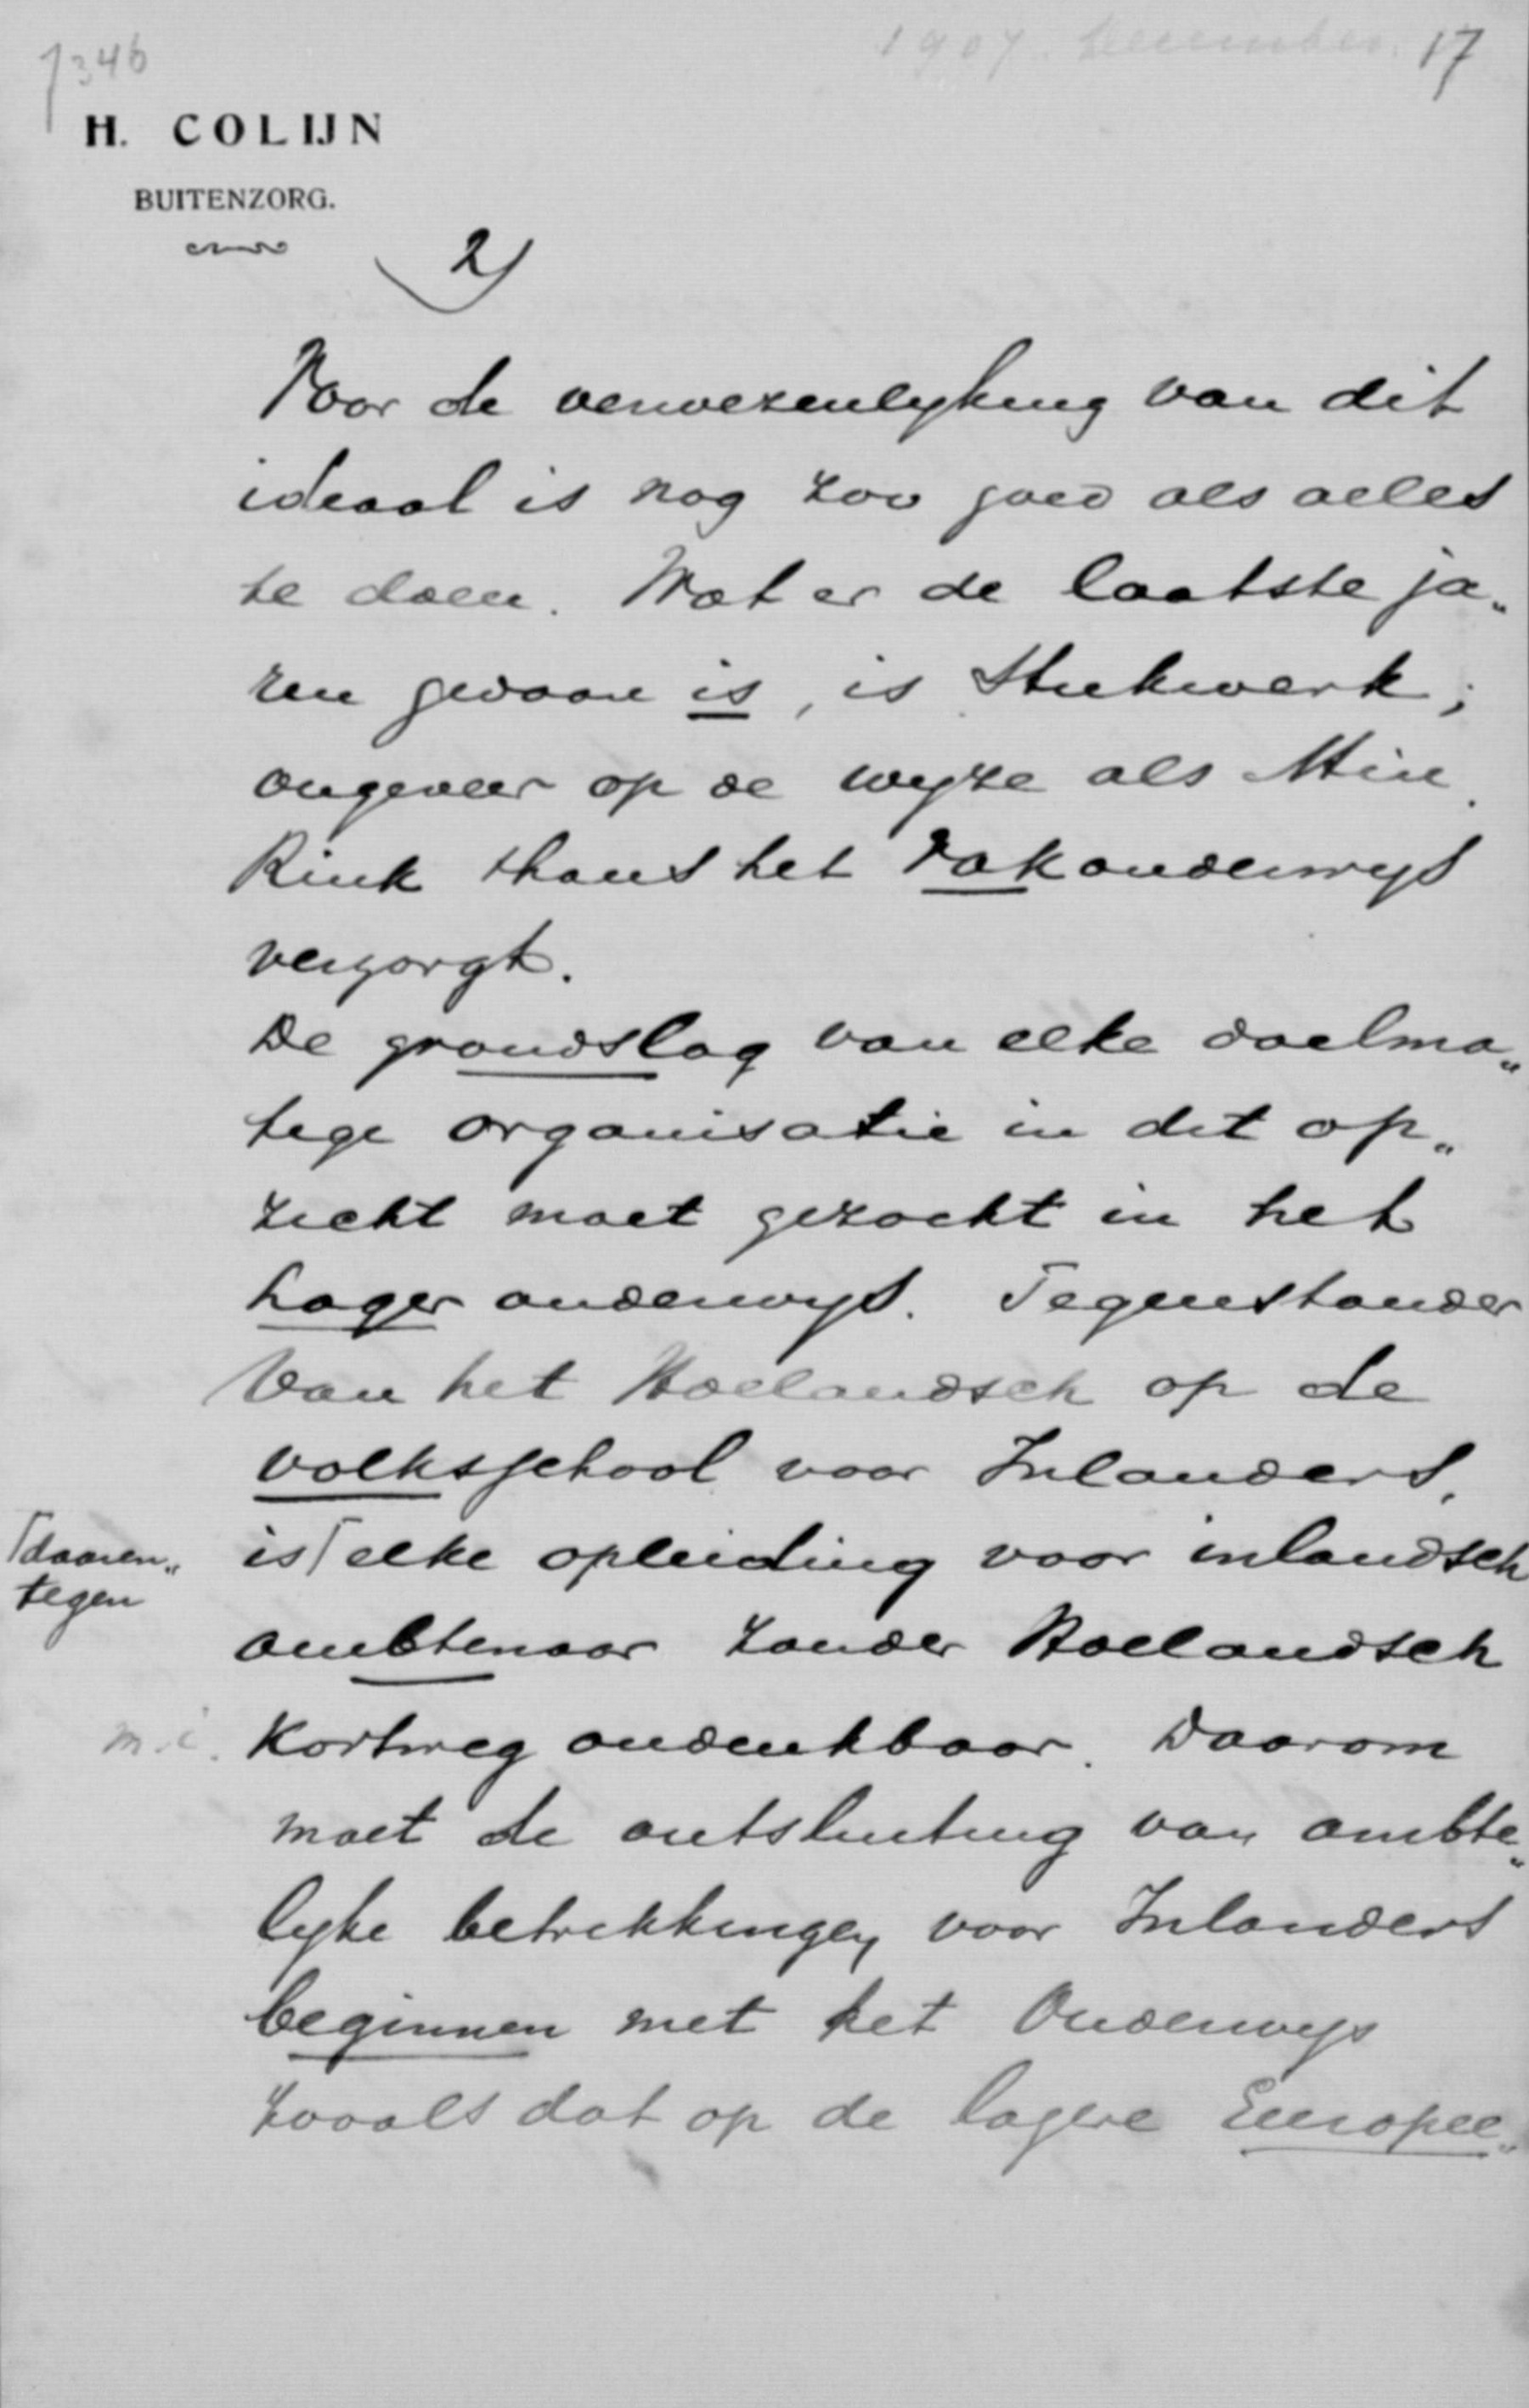 7346
1907 December. 17
H. COLIJN
BUITENZORG.
2)
Voor de verwezenlyking van dit
ideaal is nog zoo goed als alles
te doen. Wat er de laatste ja„
ren gedaan is, is stukwerk;
ongeveer op de wyze als Min.
Rink thans het vakonderwys
verzorgt.
De grondslag van elke doelma„
tige organisatie in dit op„
zicht moet gezocht in het
lager onderwys. Tegenstander
van het Hollandsch op de
volksschool voor Inlanders,
is ⌈ elke opleiding voor inlandsch
⌈daaren„
tegen
ambtenaar zonder Hollandsch
m.i. kortweg ondenkbaar. Daarom
moet de ontsluiting van ambte„
lyke betrekkingen voor Inlanders
beginnen met het Onderwys
zooals dat op de lagere Europee„